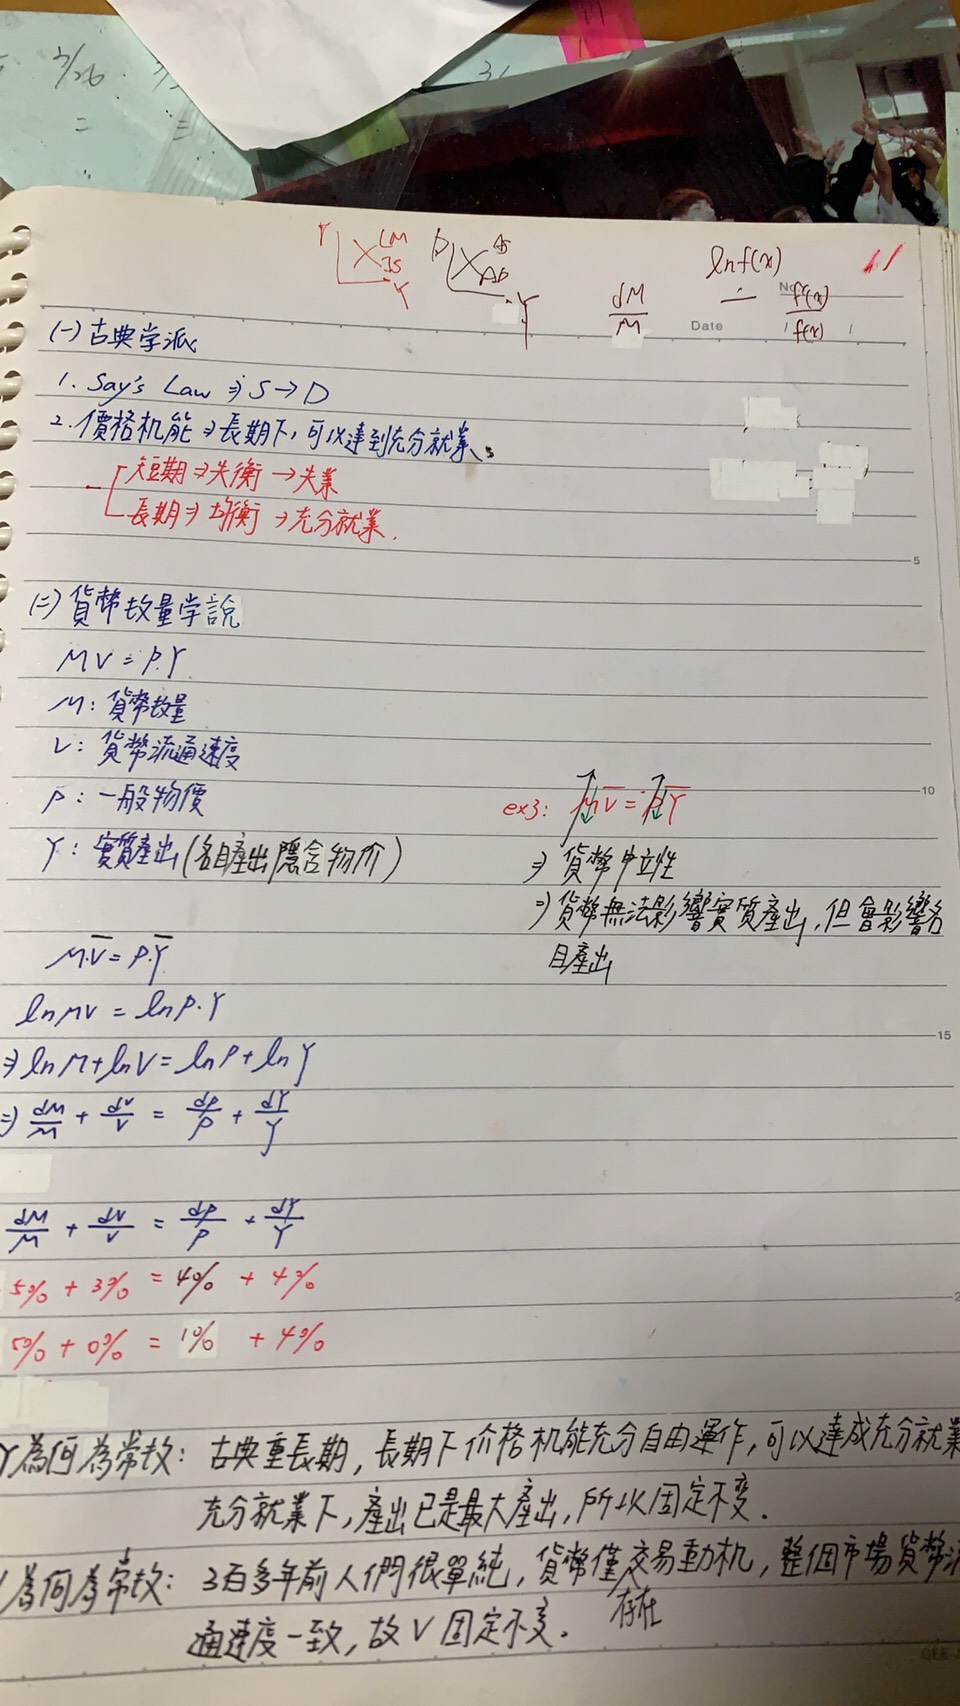 3/26
r LM IS Y
P AS AD Y
dM/M
lnf(x) ∸ f'(x)/f(x)
No.
Date
(一) 古典学派
1. Say's Law ⇒ S → D
2. 價格机能 ⇒ 長期下,可以達到充分就業。
短期 ⇒ 失衡 → 失業
長期 ⇒ 均衡 → 充分就業.
5
(二) 貨幣数量学說
MV = P.Y
M: 貨幣数量
V: 貨幣流通速度
P: 一般物價
10
ex3: M↑↓V̅ = P↑↓Y̅
Y: 實質產出(名目產出隱含物价)
⇒ 貨幣中立性
⇒ 貨幣無法影響實質產出,但會影響名
目產出
M.V̅ = P.Y̅
ln MV = ln P.Y
15
⇒ ln M + ln V = ln P + ln Y
⇒ dM/M + dV/V = dP/P + dY/Y
dM/M + dV/V = dP/P + dY/Y
5% + 3% = 4% + 4%
5% + 0% = 1% + 4%
Y為何為常数: 古典重長期,長期下价格机能充分自由運作,可以達成充分就業
充分就業下,產出已是最大產出,所以固定不变.
為何為常数: 3百多年前人們很單純,貨幣僅存在交易動机,整個市場貨幣流
通速度一致,故V固定不变.